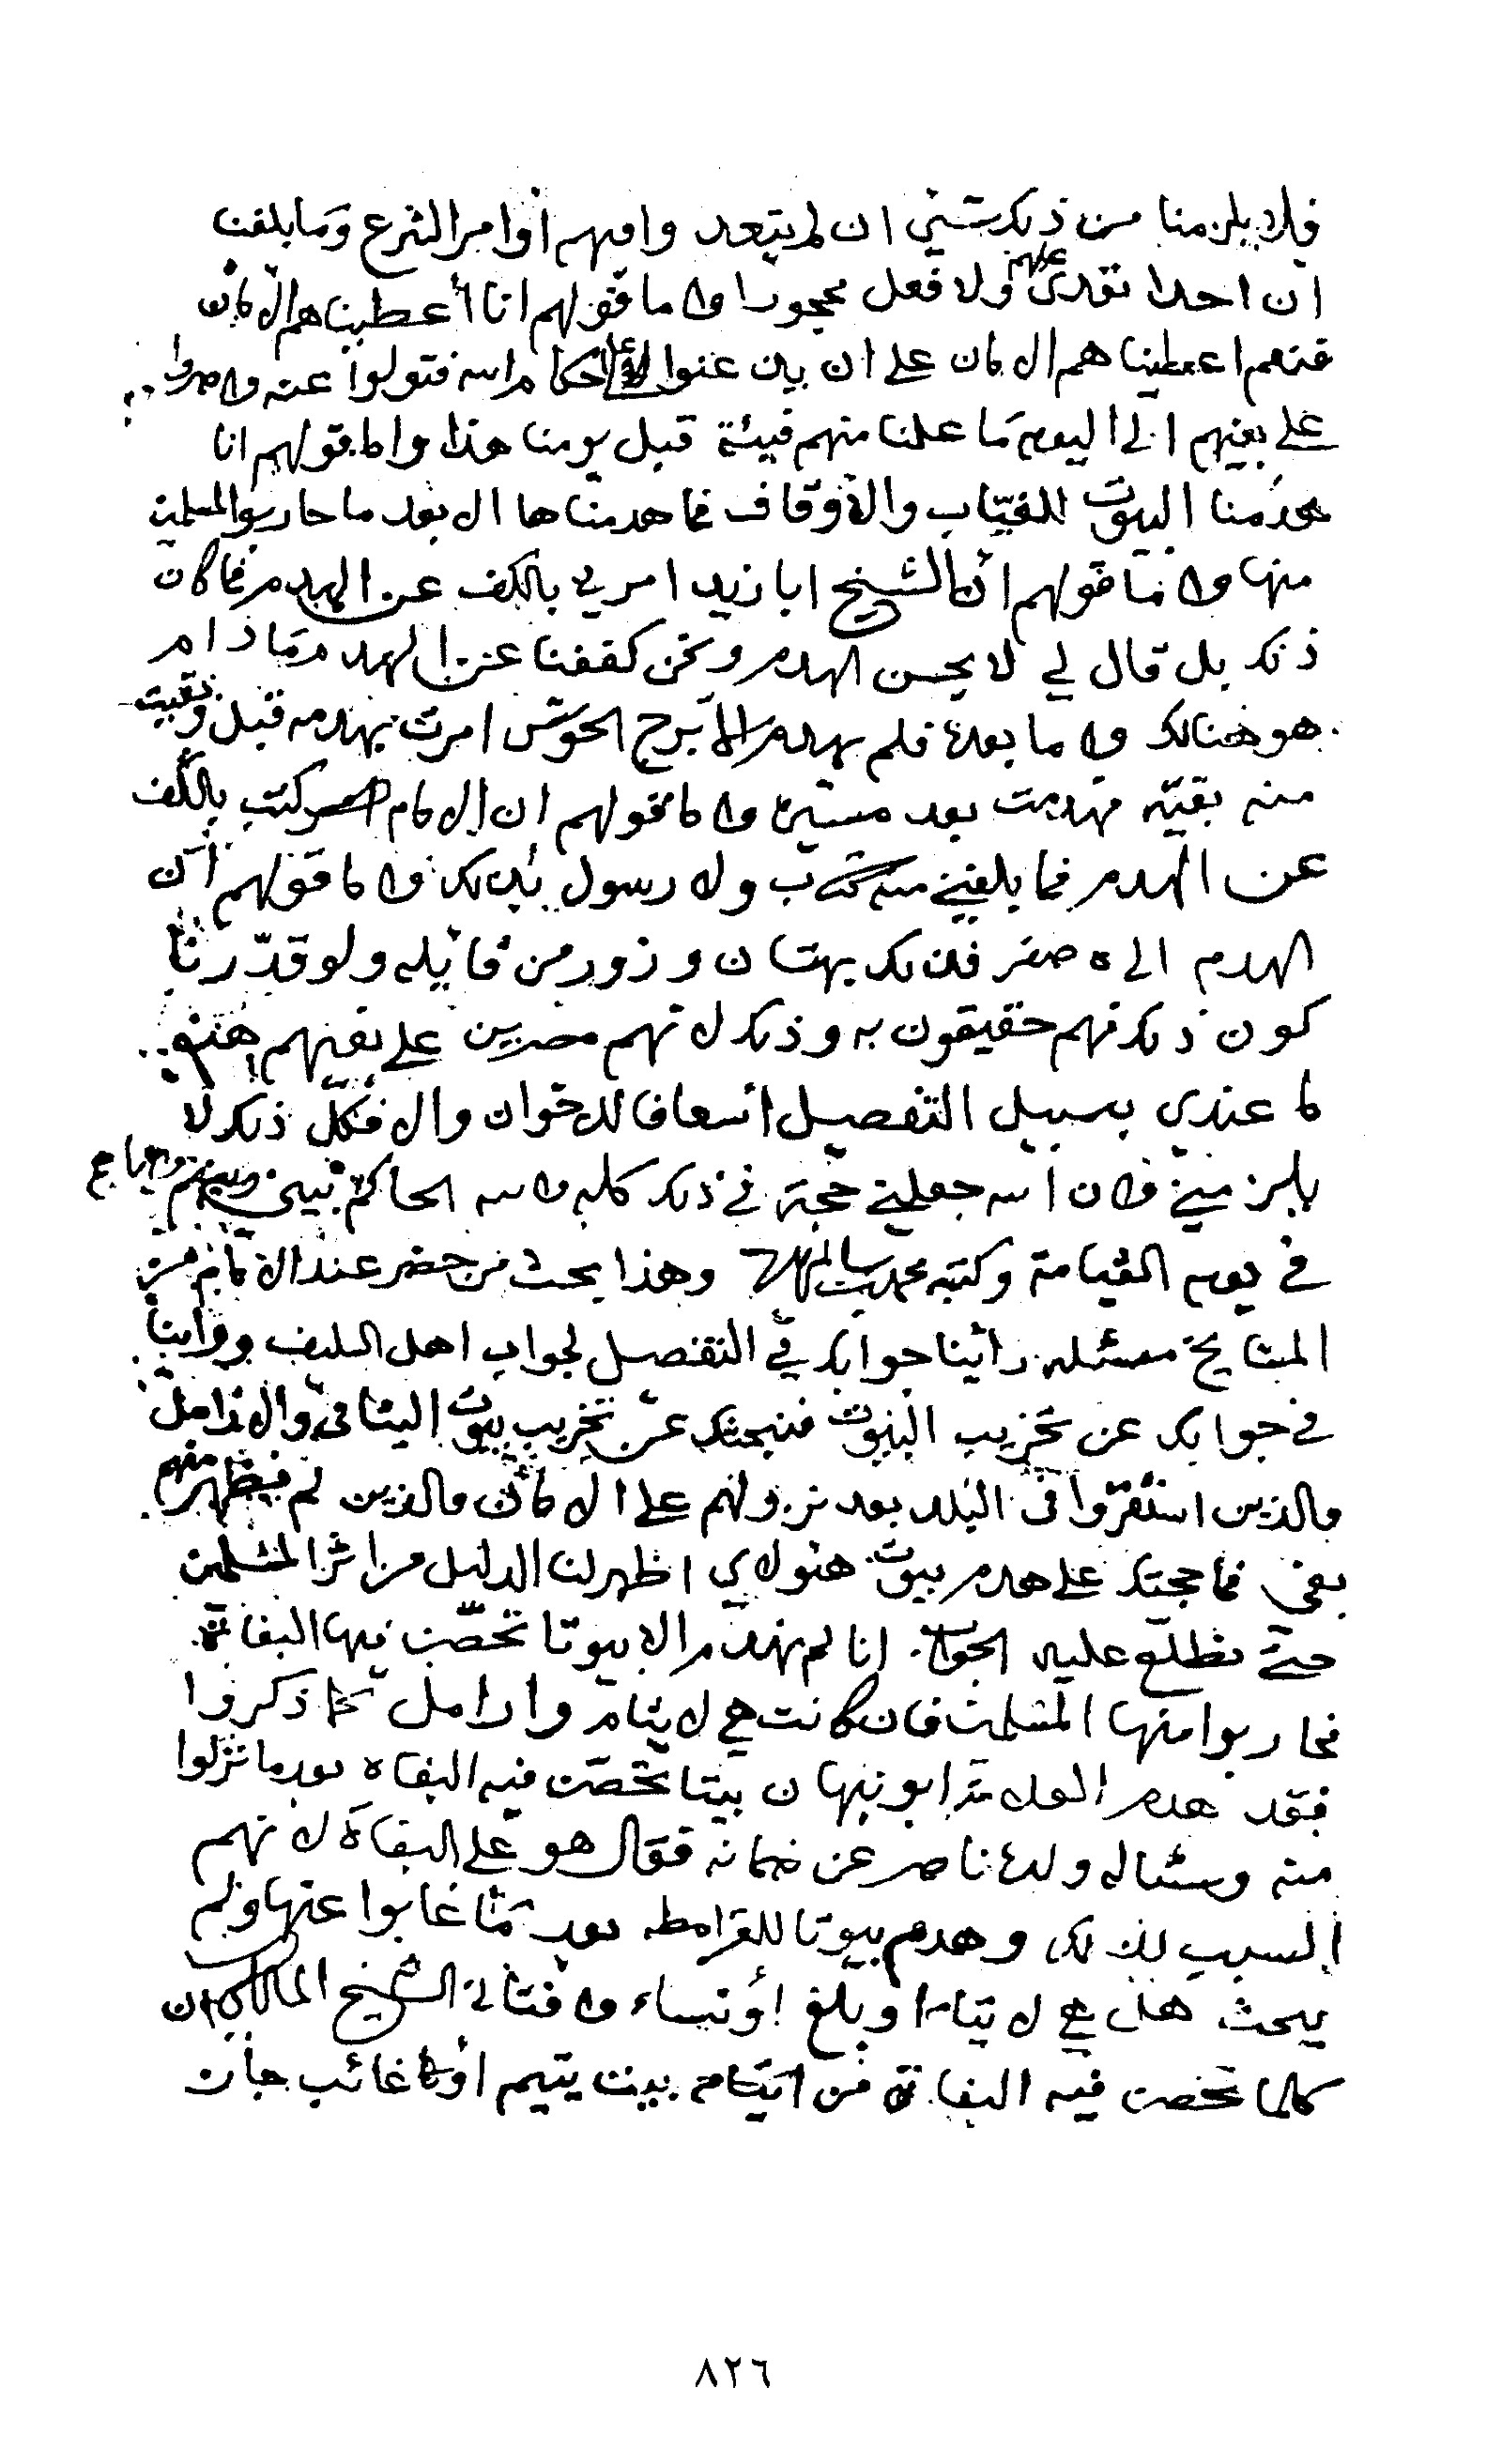 فلا يلزمنا من ذلك شي ان لم يتعد وافيهم أوامر الشرع وما بلغنا
ان احدا تعدى عليهم ولا فعل محجورا واما قولهم انا أعطيناهم الامان
فنعم اعطيناهم الامان على ان يذعنوا لأحكام الله فتولوا عنه واصروا
على بغيهم الى اليوم ما علمنا منهم فيئة قبل يومنا هذا واما قولهم انا
هدمنا البيوت للغياب والأوقاف فما هدمناها الا بعد ما حاربوا المسلمين
منها واما قولهم ان الشيخ ابا زيد امرني بالكف عن الهدم فما كان
ذلك بل قال لي لا يحسن الهدم ونحن كففنا عن الهدم ما دام
هو هنالك واما بعده فلم يهدم الا برج الحوش امرت بهدمه قبل وبقيت
منه بقية فهدمت بعد مسيره واما قولهم ان الامام كتب بالكف
عن الهدم فما بلغني منه كتاب ولا رسول بذلك واما قولهم ان
الهدم الى ٥ صفر فذلك بهتان وزور من قائله ولو قدّرنا
كون ذلك فهم حقيقون به وذلك لانهم مصرين على بغيهم هذا
ما عندي بسبيل التفصيل اسعافا للاخوان والا فكل ذلك لا
يلزمني فان الله جعلني حجة في ذلك كله والله الحاكم بيني وبينهم
في يوم القيامة وكتبه محمد بن سالم وهذا بحث من حضر عند الامام من
المشايخ مسئلة رأينا جوابك في التفصيل لجواب اهل البليف ورأينا
في جوابك عن تخريب البيوت فنبحثك عن تخريب بيوت اليتامى والارامل
والذين استقرّوا في البلد بعد نزولهم على الامان والذين لم يظهر منهم
بغي فما حجتك على هدم بيوت هؤلاي اظهر لنا الدليل من اثر المسلمين
حتى نطلع عليه الجواب انا لم نهدم الا بيوتا تحصّن فيها البغاة
فحاربوا منها المسلمين فان كانت هي لايتام وارامل كما ذكروا
فقد هدم العلامة ابو نبهان بيتا تحصّن فيه البغاة بعد ما نزلوا
منه وسئاله ولده ناصر عن ضمانه فقال هو على البغاة لانهم
السبب لذلك وهدم بيوتا للقرامطه بعد ما غابوا عنها ولم
يبحث هل هي لايتام او بلغ او نساء وافتاني الشيخ المالكي ان
كلما تحصن فيه البغاة من بيت يتيم أو غائب جاز
٨٢٦